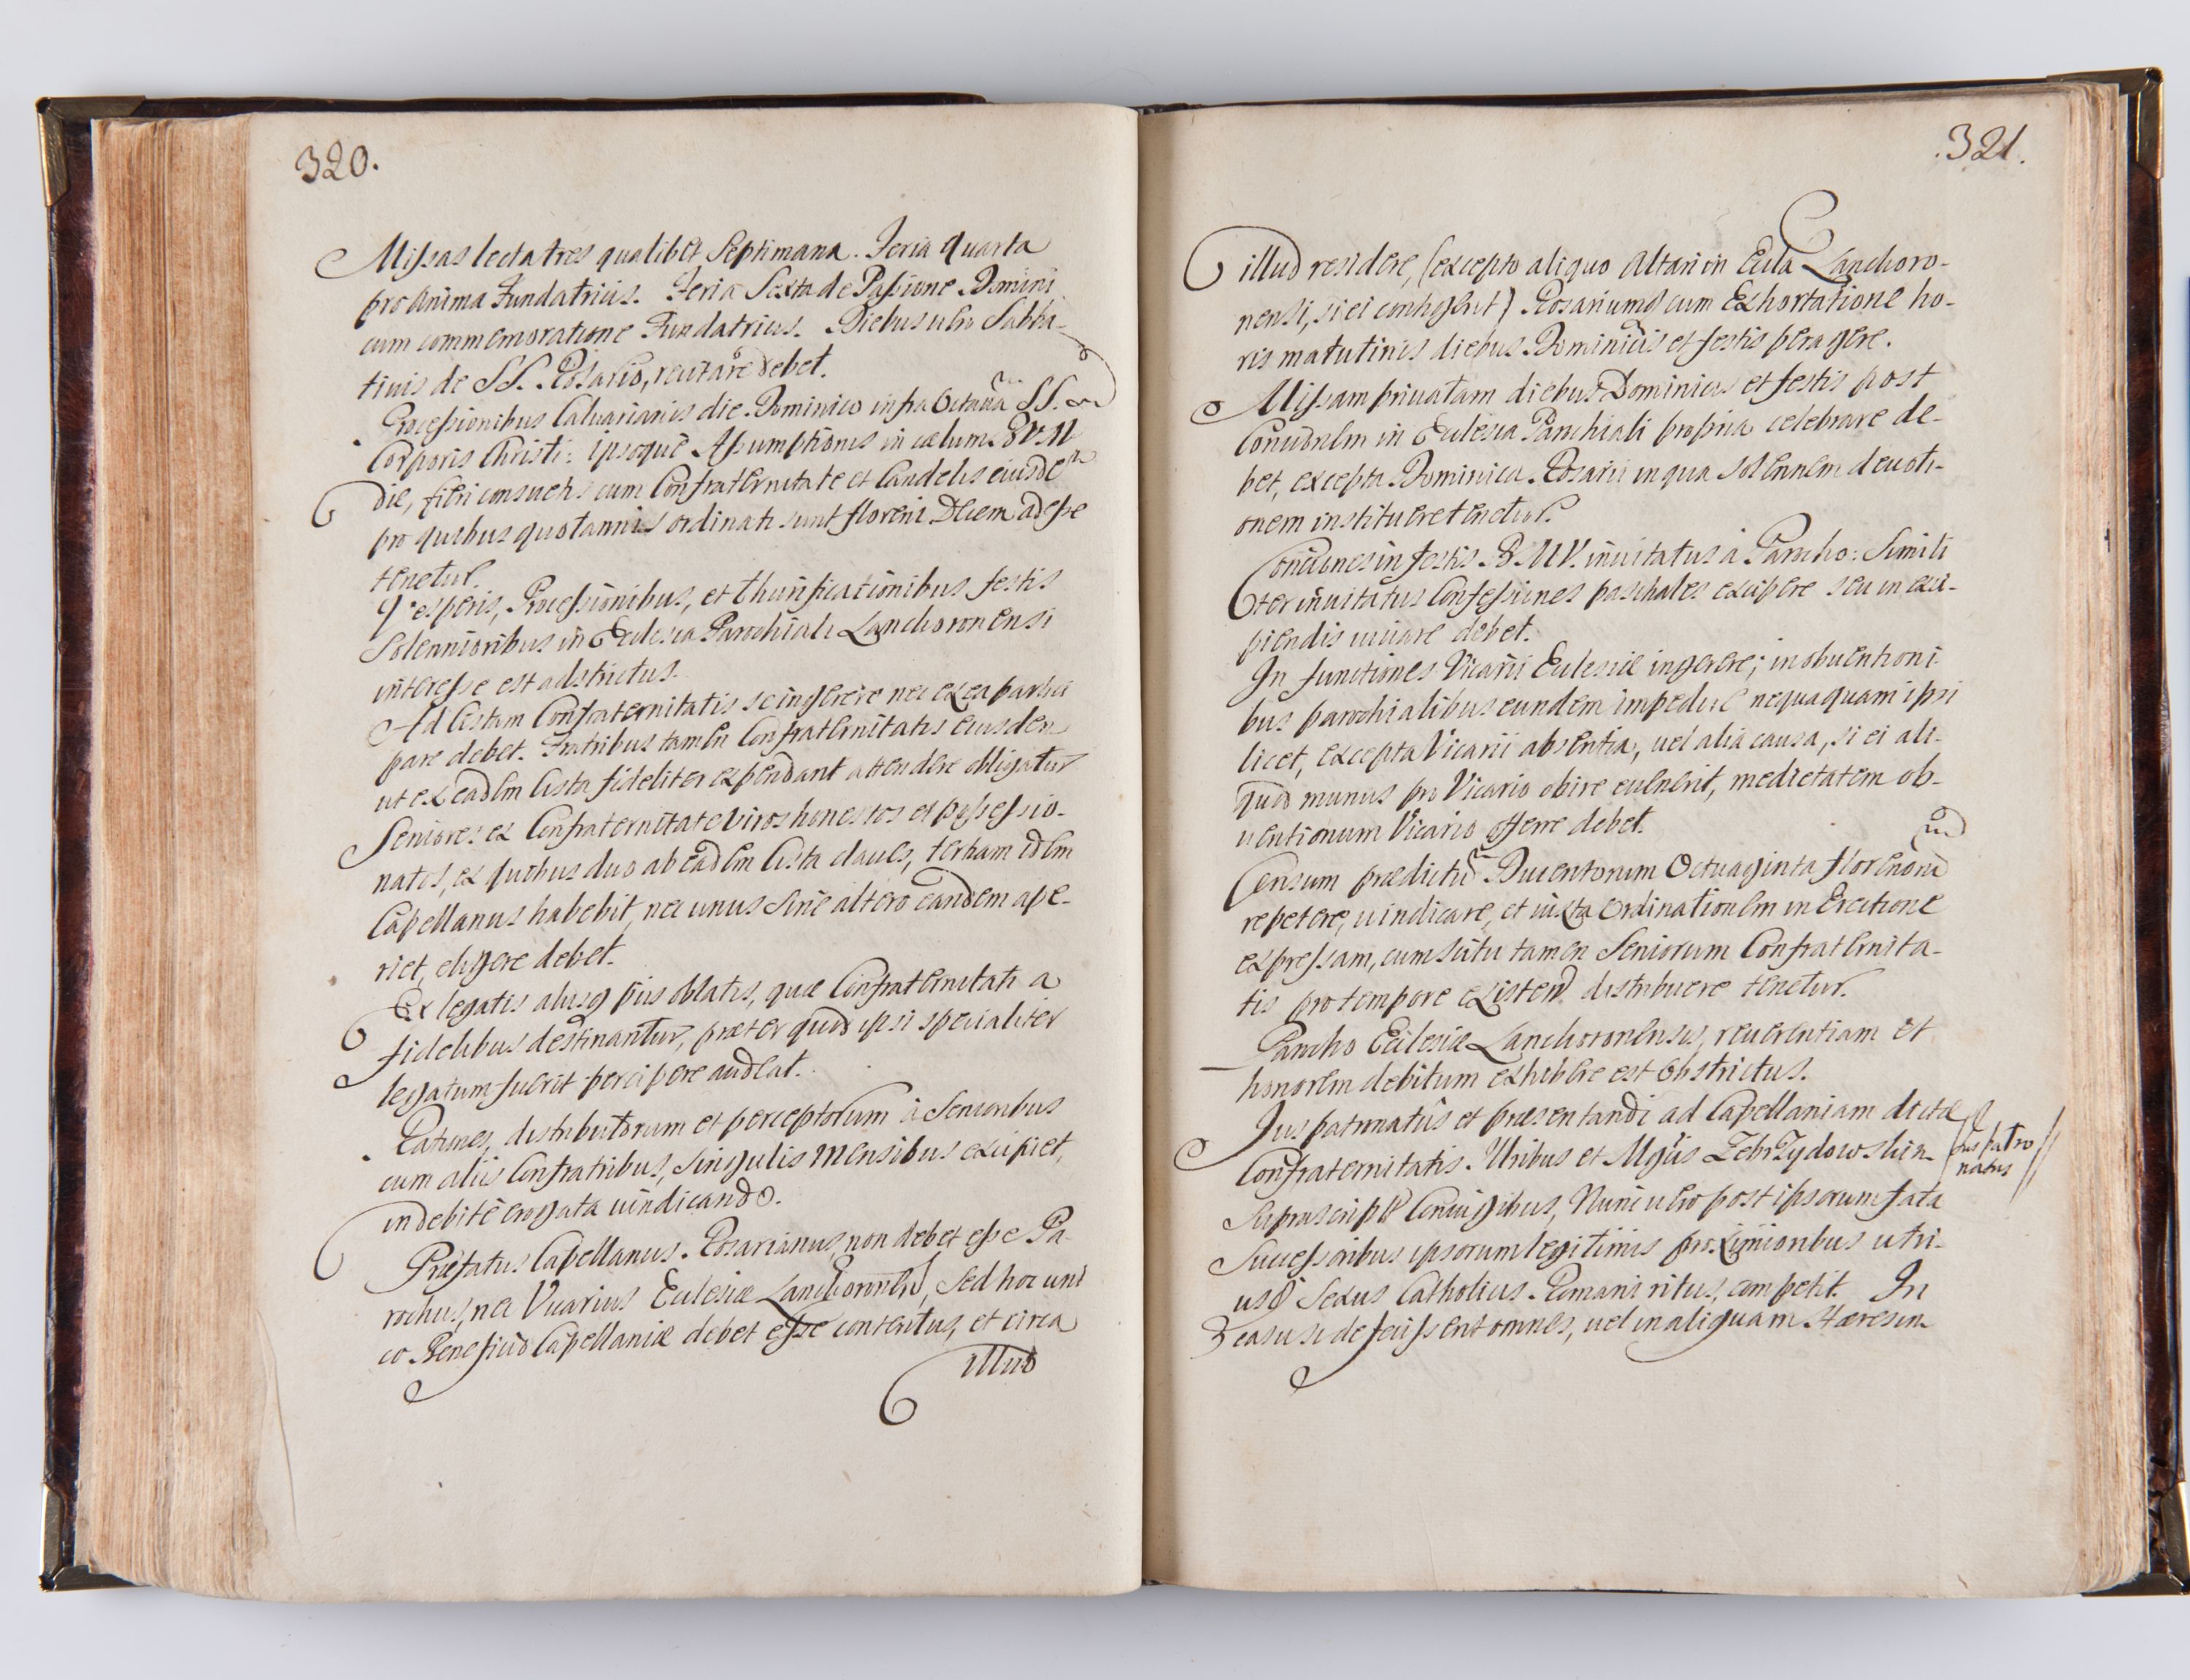 320.
Missas lectas tres qualibet Septimana. Feria quarta
pro Anima Fundatricis. Feria Sexta de Passione Domini
cum commemoratione Fundatricis. Diebus uero Sabba-
tinis de SS. Rosario, recitare debet.
Processionibus Caluarianis die Dominico infra Octauã SS.
Corporis Christi: ipsoque Assumptionis in cælum BVM
die, fieri consuetis cum Confraternitate et Candelis eiusdẽ
pro quibus quotannis ordinati sunt floreni Decem adesse
tenetur.
Vesperis, Processionibus, et thurificationibus festis
Solennioribus in Ecclesia Parochiali Lanckoronensi
interesse est adstrictus.
Ad Cistam Confraternitatis se ingerere nec ex ea partici
pare debet. Fratribus tamen Confraternitatis eiusdem
ut ex eadem Cista fideliter expendant attendere obligatur
Seniores ex Confraternitate viros honestos et possessio-
natos, ex quibus duo ab eadem Cista claues, tertiam idem
Capellanus habebit, nec unus sine altero eandem ape-
riet, eligere debet.
Ex legatis alijsq pijs oblatis, quæ Confraternitati a
fidelibus destinantur, præter quod ipsi specialiter
legatum fuerit percipere audeat.
Rationes, distributorum et perceptorum à Senioribus
cum alijs Confratribus, singulis mensibus excipiet,
indebitè erogata uindicando.
Præfatus Capellanus Rosarianus, non debet esse Pa-
rochus, nec Vicarius Ecclesiæ Lanckoronen, Sed hoc uni
co Beneficio Capellaniæ debet esse contentus, et circa
illud
.321.
illud residere, (excepto aliquo Altari in Eccla Lanckoro-
nensi, si ei contigerit) Rosariumq cum Exhortatione ho-
ris matutinis diebus Dominicis et festis peragere.
Missam priuatam diebus Dominicis et festis post
Concionem in Ecclesia Parochiali propria celebrare de-
bet, excepta Dominica Rosarij in qua solennem deuoti-
onem instituere tenetur.
Conciones in festis BMV. inuitatus à Parocho: Simili
ter inuitatus Confessiones paschales excipere seu in exci-
piendis iuuare debet.
In functiones Vicarij Ecclesiæ ingerere; in obuentioni
bus parochialibus eundem impedire nequaquam ipsi
licet, excepta Vicarij absentia, uel alia causa, si ei ali-
quod munus pro Vicario obire euenerit, medietatem ob-
uentionum Vicario offerre debet.
Censum prædictũ Ducentorum Octuaginta florenorũ
repetere, uindicare, et iuxta ordinationem in Erectione
expressam, cum scitu tamen Seniorum Confraternita-
tis pro tempore existen distribuere tenetur.
Parocho Ecclesiæ Lanckoronensis, reuerentiam et
honorem debitum exhibere est obstrictus.
Jus patronatûs et præsentandi ad Capellaniam dictæ
Jus patro
natus
Confraternitatis. Uribus et Mgcis Zebrzydowskien
Suprascript Coniugibus, Nunc uero post ipsorum fata
Successoribus ipsorum legitimis proximioribus utri-
usq Sexus Catholicis Romani ritus, competit. In
casu si defecissent omnes, uel in aliquam Hæresim